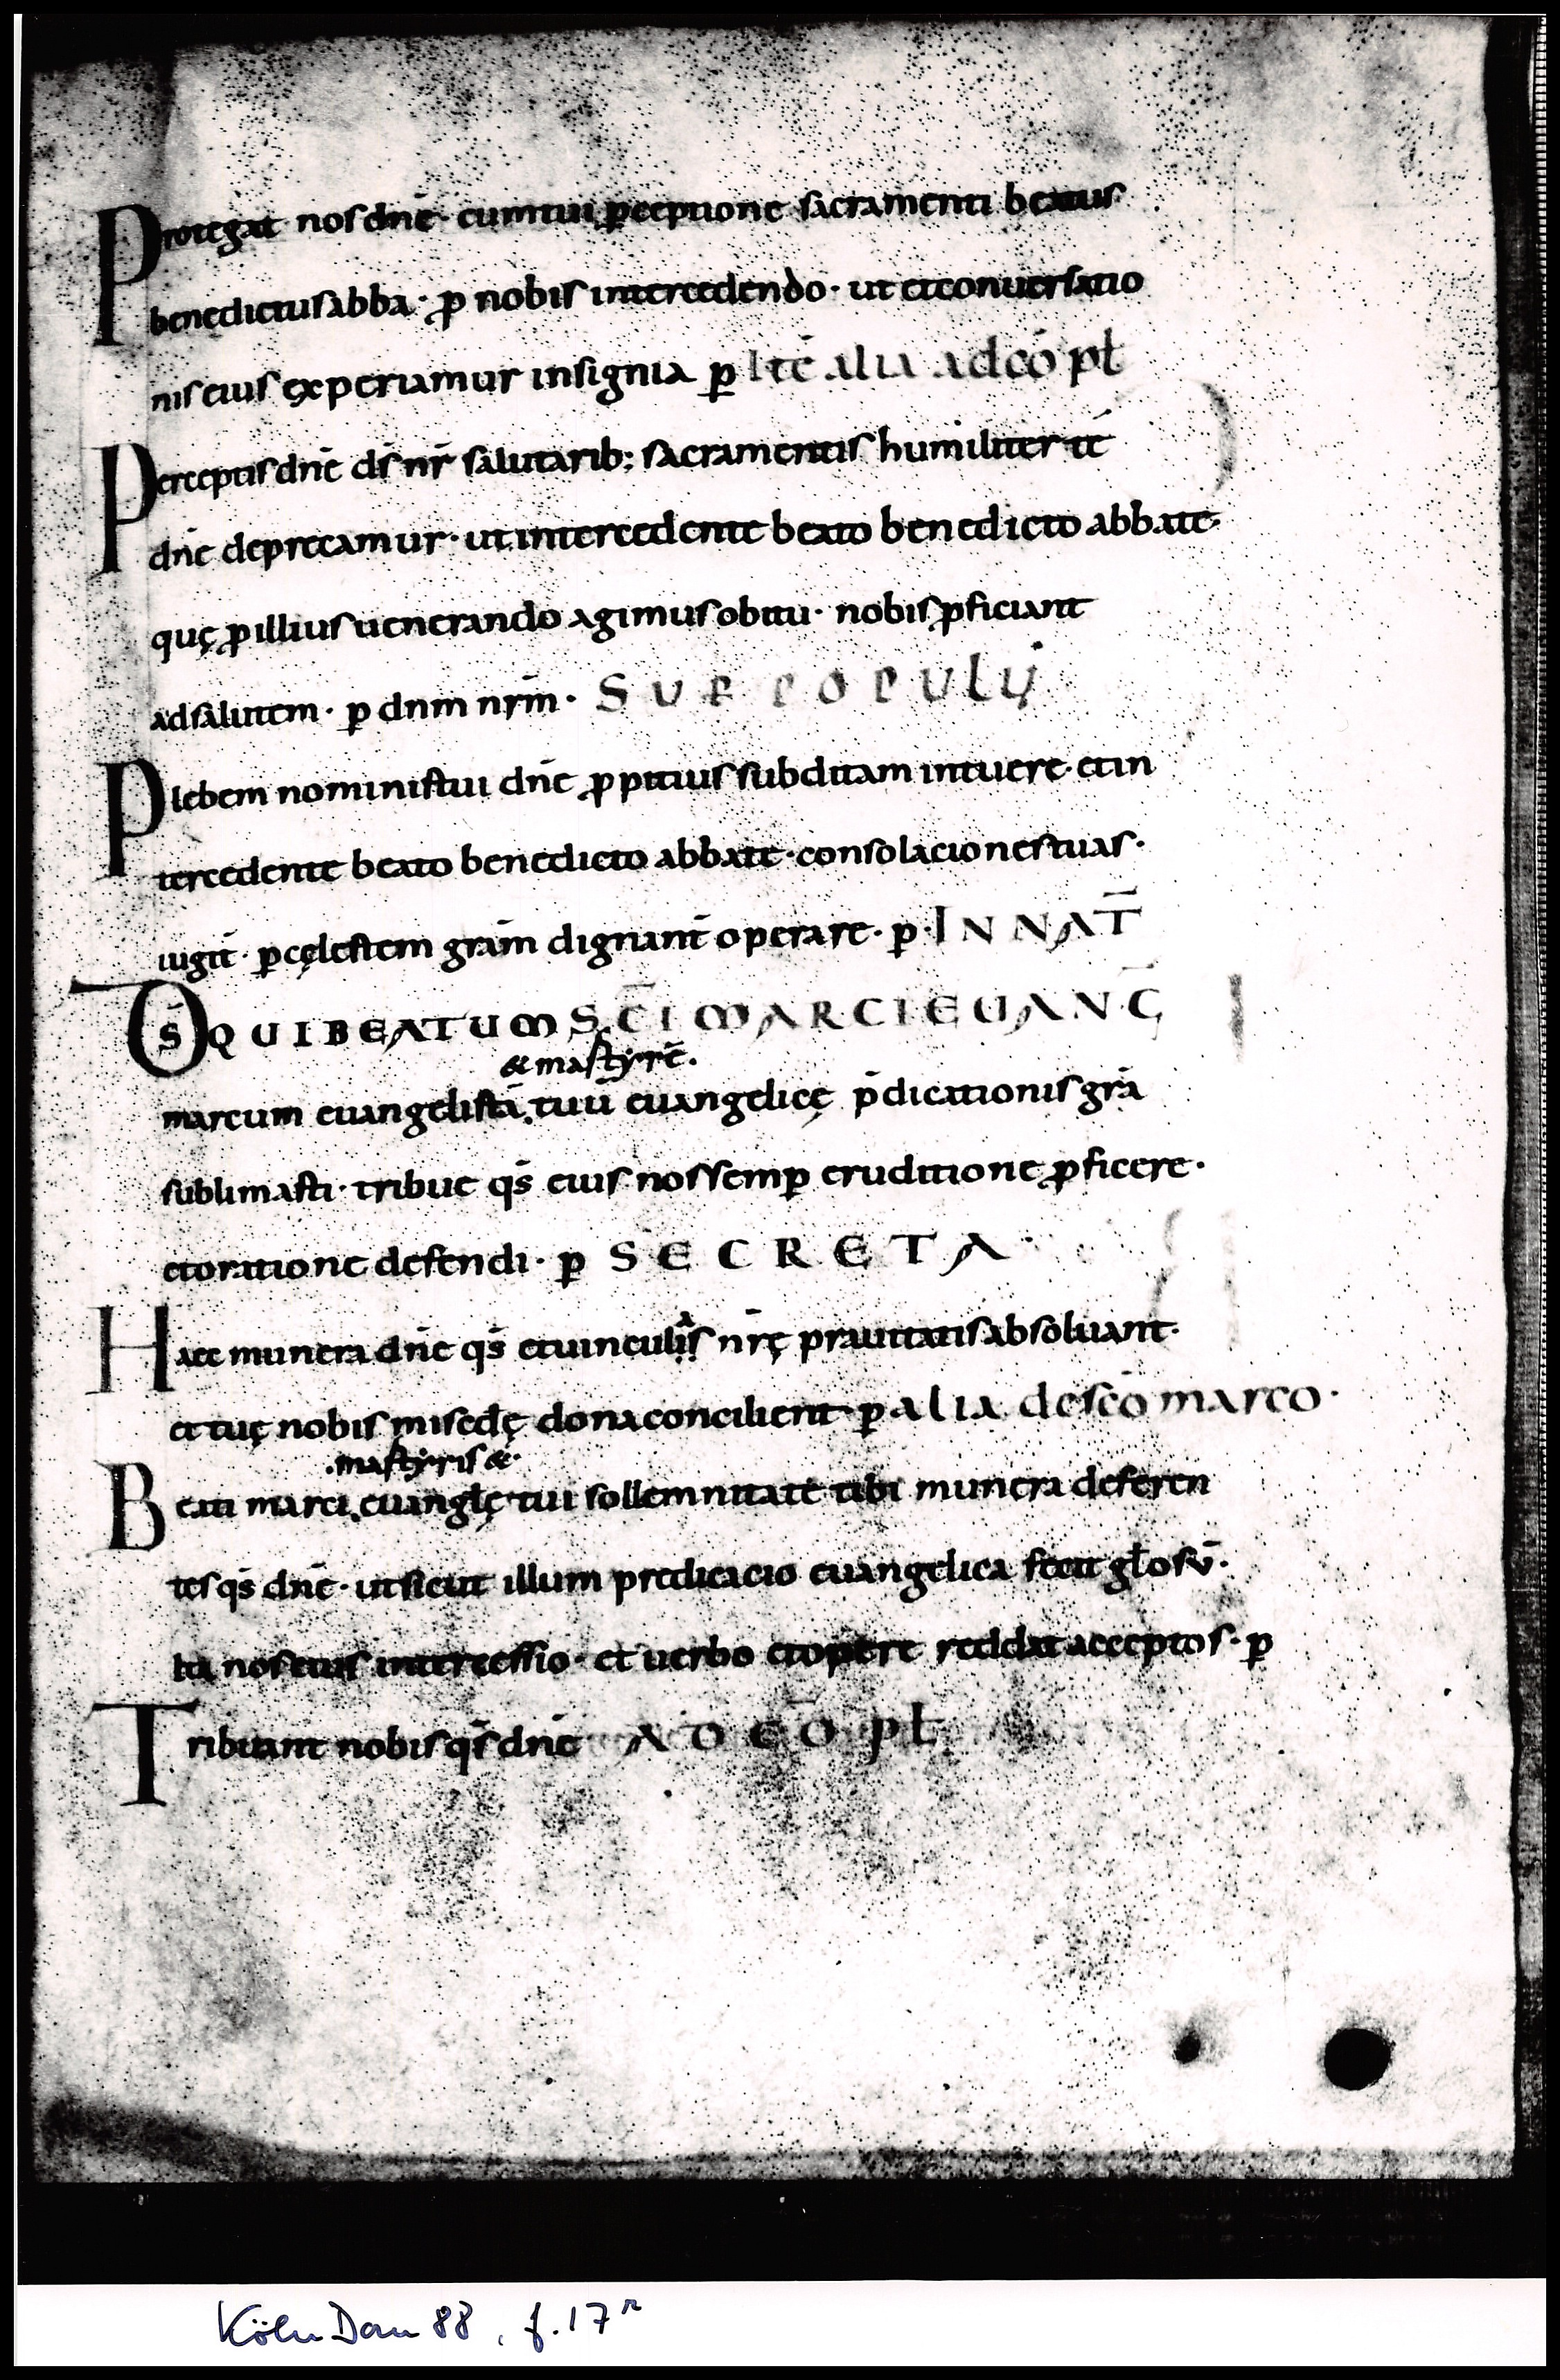 Protegat nos dnē · cum tui ꝑceptione sacramenti beatus
benedictus abba · ꝓ nobis intercedendo · ut et conuersatio
nis eius experiamur insignia ꝑ Itē alia ad cō pł
Perceptis dnē ds̄ nr̄ salutarib; sacramentis humiliter tē
dnē deprecamur · ut intercedente beato benedicto abbate ·
quę ꝓ illius uenerando agimus obitu · nobis ꝓficiant
ad salutem · ꝑ dnm nrm̄ · SUP POPULU
Plebem nominis tui dnē ꝓpitius subditam intuere · et in
tercedente beato benedicto abbate · consolaciones tuas ·
iugit̄ · ꝑ cęlestem gram̄ dignant̄ operare · ꝑ · IN NAT̄
Ds̄ QUI BEATUM SC̄I MARCI EUANḠ
& martyrē ·
marcum euangelistā tuū euangelicę p̄dicationis grā
sublimasti · tribue qs̄ eius nos semꝑ eruditione ꝓficere ·
et oratione defendi · ꝑ SECRETA ·
Haec munera dnē qs̄ et uinculis nr̄ę prauitatis absoluant ·
et tuę nobis misedę dona concilient · ꝑ alia de scō marco ·
· martyris & ·
Beati marci euanglę tui sollemnitate tibi munera deferen
tes qs̄ dnē · ut sicut illum predicacio euangelica fecit głosū ·
Ita nos eius intercessio · et uerbo et opere reddat acceptos · ꝑ
Tribuant nobis qs̄ dnē AD CŌ pł
Köln Dom 88, f. 17r